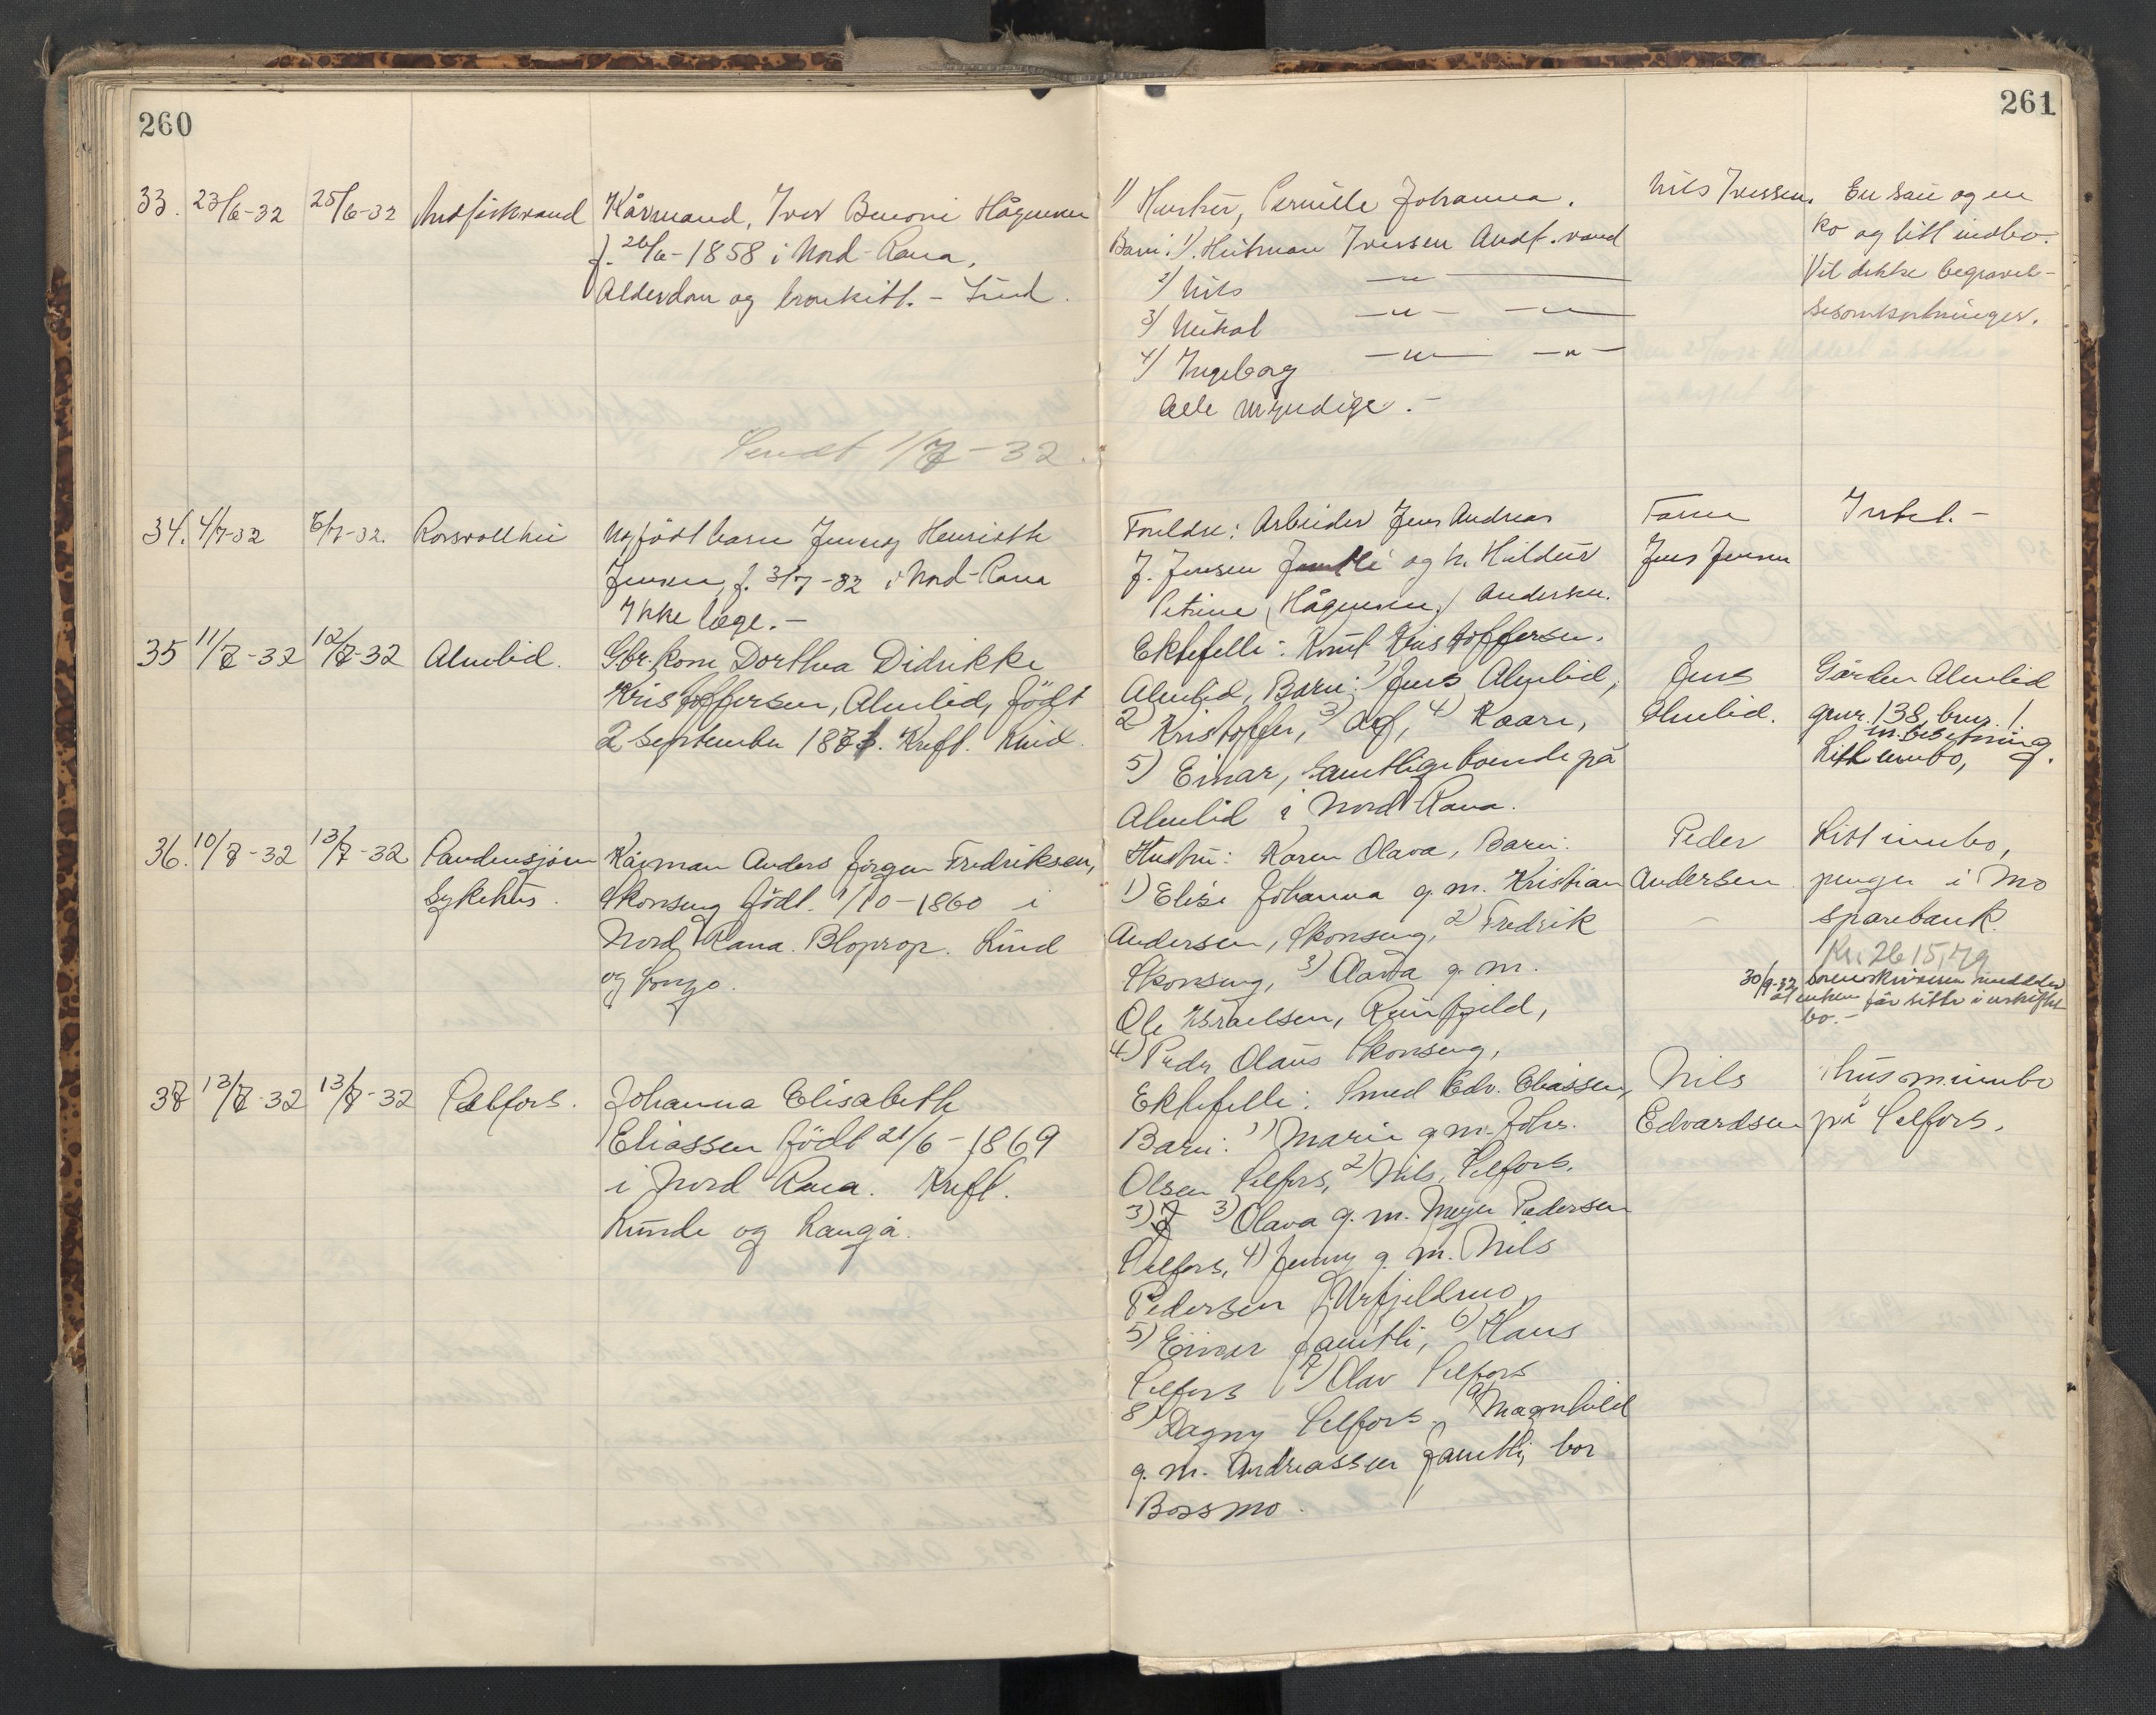 260
33. 23/6-32 25/6-32 Andfiskvand Kårmand, Iver Benoni Hågensen
f. 26/6-1858 i Nord-Rana.
Alderdom og bronkitt. - Lund.
Sendt 1/7-32.
34. 4/7-32 6/7-32. Rossvollhei Nyfødt barn Jenny Henriette
Jensen, f. 3/7-32 i Nord-Rana
Ikke læge. -
35 11/7-32 12/7-32 Almlid. Gbr. kone Dorthea Didrikke
Kristoffersen, Almlid, født
2 September 1871. Kreft. Lund.
36. 10/7-32 13/7-32 Sandnessjøen Kårman Anders Jørgen Fredriksen,
Sykehus. Skonseng født. 1/10-1860 i
Nord Rana. Bloprop. Lund
og Congo.
37 13/7-32 13/7-32 Selfors. Johanna Elisabeth
Eliassen født 21/6-1869
i Nord Rana. Kreft.
Lunde og Haugå.
261
1) Hustru, Pernille Johanna. Nils Iversen. En saue og en
Barn: 1). Hartman Iversen Andf.vand ko og litt indbo.
2) Nils — " — Vil dekke begravel-
3) Mikal — " — — " — sesomkostninger.
4) Ingeborg — " — — " —
Alle myndige. -
Foreldre: Arbeider Jens Andreas Faren Intet. -
J. Jensen Jamtli og h. Hildur Jens Jensen
Petrine (Hågensen) Andersen.
Ektefelle: Knut Kristoffersen.
Almlid, Barn: 1) Jens Almlid, Jens Gården Almlid
2) Kristoffer, 3) Alf, 4) Kaare, Almlid. gnr. 138, bnr. 1.
m. besetning.
5) Einar, samtlige boende på Litt innbo,
Almlid i Nord-Rana.
Hustru: Karen Olava, Barn: Peder Litt innbo,
1) Elise Johanna g. m. Kristian Andersen penger i Mo
Andersen, Skonseng, 2) Fredrik sparebank.
Skonseng, 3) Olava g. m. Kr. 2615,79
30/9-32 sorenskriveren meddeler
Ole Israelsen, Reinfjeld, at enken får sitte i uskiftet
bo. -
4) Peder Olaus Skonseng,
Ektefelle: Smed Edv. Eliassen, Nils Hus m. innbo
Barn: 1) Marie g. m. Johs. Edvardsen på Selfors.
Olsen Selfors, 2) Nils, Selfors.
3) J 3) Olava g. m. Meyer Pedersen
Selfors, 4) Jenny g. m. Nils
Pedersen Urfjeldmo,
5) Einar Jamtli, 6) Hans
Selfors 7) Olav Selfors
8) Dagny Selfors. 9) Magnhild
g. m. Andreassen Jamtli, bor
Bossmo.